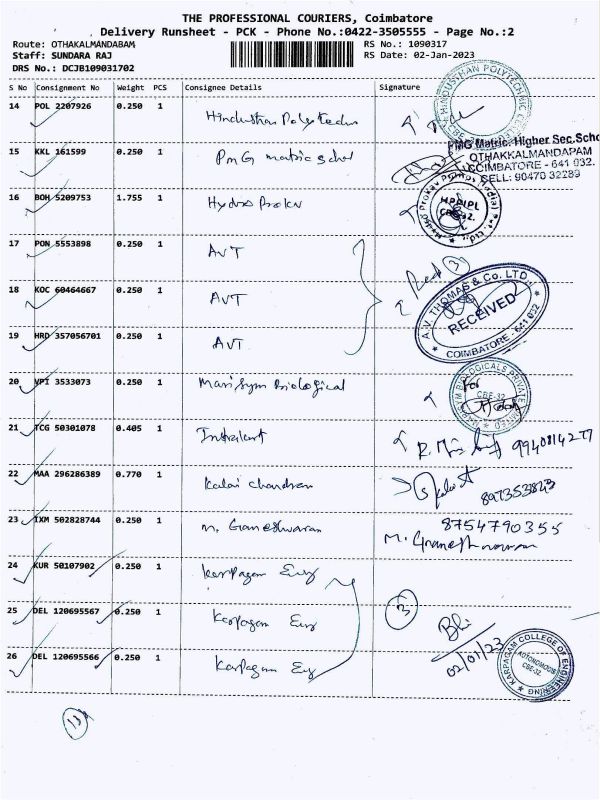 THE PROFESSIONAL COURIERS, Coimbatore
Delivery Runsheet - PCK - Phone No.:0422-3505555 - Page No.:2
Route: OTHAKALMANDABAM RS No.: 1090317
Staff: SUNDARA RAJ RS Date: 02-Jan-2023
DRS No.: DCJB109031702
S No Consignment No Weight PCS Consignee Details Signature
14 POL 2207926 0.250 1 Hindusthan Polytechn
HINDUSTHAN POLYTECHNIC
15 KKL 161599 0.250 1 PMG matric schol
PMG Matric. Higher Sec.Scho
OTHAKKALMANDAPAM
COIMBATORE - 641 032.
CELL: 90470 32289
16 BOH 5209753 1.755 1 Hydro Prokav
Hydro Prokav Pumps (India) Pvt. Ltd.,
HPPIPL
CBE-32.
17 PON 5553898 0.250 1 AVT
18 KOC 60464667 0.250 1 AVT
Recd 3
A.V. THOMAS & Co. LTD.,
RECEIVED
COIMBATORE - 641 032
19 HRD 357056701 0.250 1 AVT
20 VPI 3533073 0.250 1 Biological
BIOLOGICALS PRIVATE LIMITED
CBE-32
For
21 TCG 50301078 0.405 1
22 MAA 296286389 0.770 1 Kalai Chandran
8973535843
23 IXM 502828744 0.250 1 M. Ganeshwaran
8754790355
M. Ganeshwaran
24 KUR 50107902 0.250 1 Karpagam Eng
25 DEL 120695567 0.250 1 Karpagam Eng
3
26 DEL 120695566 0.250 1 Karpagam Eng
02/01/23
KARPAGAM COLLEGE OF ENGINEERING
AUTONOMOUS
CBE-32.
13